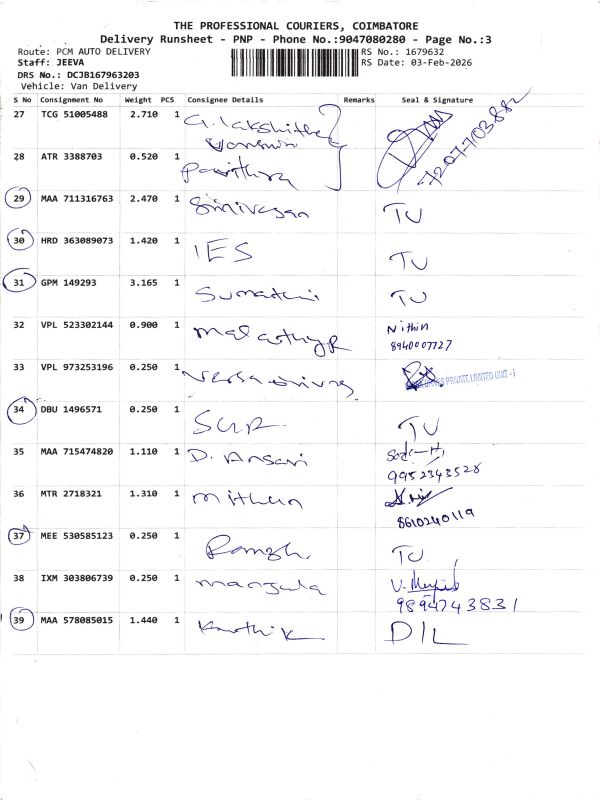 THE PROFESSIONAL COURIERS, COIMBATORE
Delivery Runsheet - PNP - Phone No.:9047080280 - Page No.:3
Route: PCM AUTO DELIVERY RS No.: 1679632
Staff: JEEVA RS Date: 03-Feb-2026
DRS No.: DCJB167963203
Vehicle: Van Delivery
S No Consignment No Weight PCS Consignee Details Remarks Seal & Signature
27 TCG 51005488 2.710 1 G. Lakshitha
28 ATR 3388703 0.520 1 Pavithra
29 MAA 711316763 2.470 1 Srinivasan TU
30 HRD 363089073 1.420 1 IES TU
31 GPM 149293 3.165 1 Sumathi TU
32 VPL 523302144 0.900 1 Nithin
8940007727
33 VPL 973253196 0.250 1 PRIVATE LIMITED UNIT - I
34 DBU 1496571 0.250 1 SUR TU
35 MAA 715474820 1.110 1 D. Ansari
9952343528
36 MTR 2718321 1.310 1 Mithun
8610240119
37 MEE 530585123 0.250 1 Ramesh. TU
38 IXM 303806739 0.250 1 Manjula
9894743831
39 MAA 578085015 1.440 1 Karthik D/L